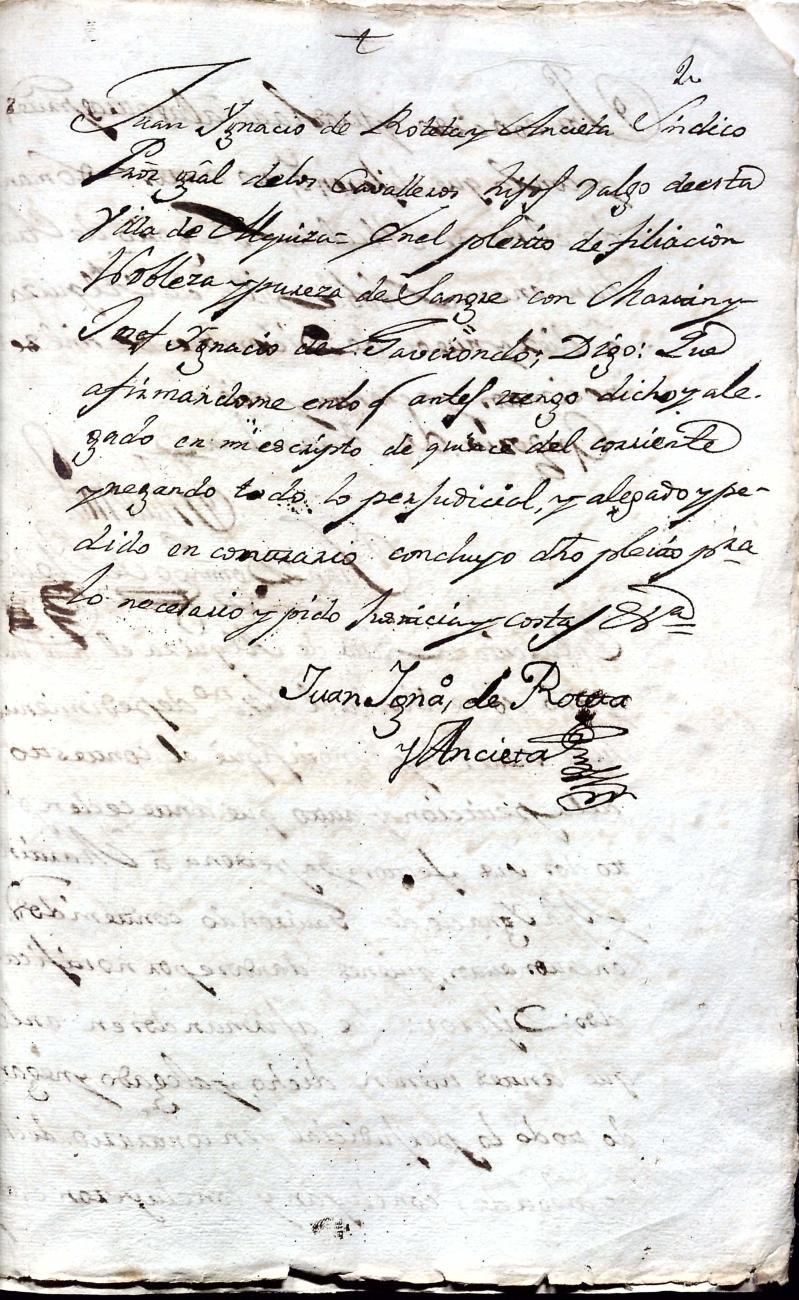 2
Juan Ygnacio de Roteta y Ancieta Síndico
Pror gral delos Cavalleros hijos dalgo deesta
Villa de Alquiza = Enel pleito de filiacion
Nobleza y pureza de Sangre con Martin y
Josef Ygnacio de Garciarondo; Digo: Que
afirmandome enlo q antes tengo dicho y ale-
gado en mi escripto de quince del corriente
y negando todo lo perjudicial, y alegado y pe-
dido en contrario concluyo dho pleito pra
lo necesario y pido Justicia y costas &a
Juan Ignao, de Roteta
y Ancieta